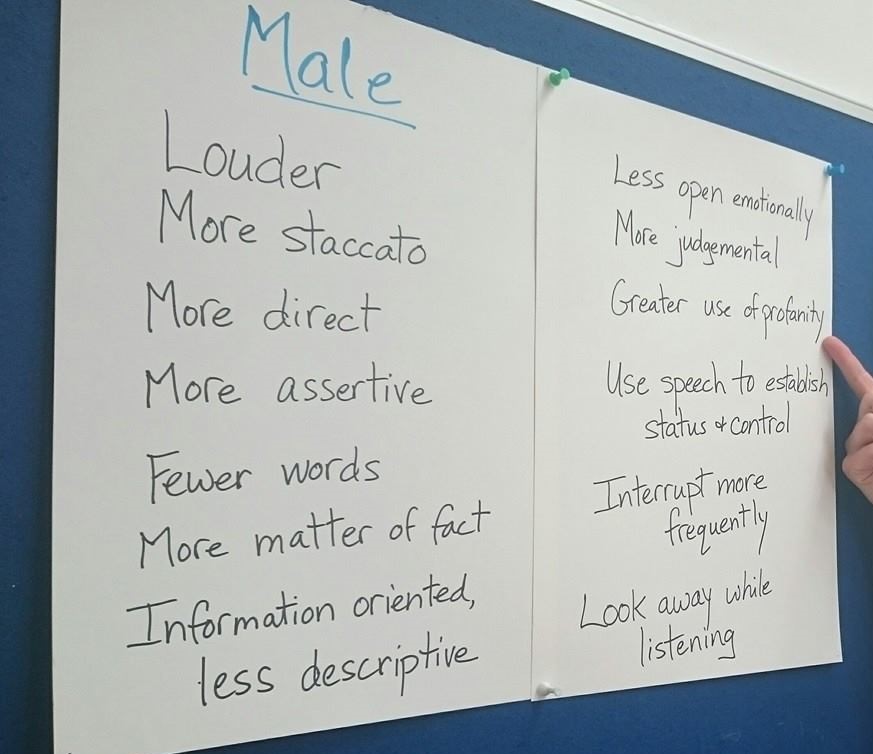 Male
Louder
More staccato
More direct
More assertive
Fewer words
More matter of fact
Information oriented,
less descriptive
Less open emotionally
More judgemental
Greater use of profanity
Use speech to establish
status & control
Interrupt more
frequently
Look away while
listening